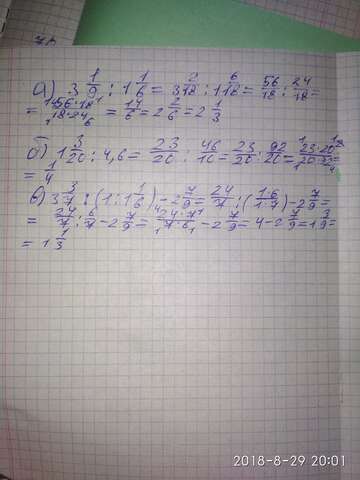 а) 3 1/9 : 1 1/6 = 3 2/18 : 1 6/18 = 56/18 : 24/18 =
= 56·18/18·24 = 14/6 = 2 2/6 = 2 1/3
б) 1 3/20 : 4,6 = 23/20 : 46/10 = 23/20 : 92/20 = 23·20/20·92 =
= 1/4
в) 3 3/7 : (1 : 1 1/6) - 2 7/9 = 24/7 : (1·6/1·7) - 2 7/9 =
= 24/7 : 6/7 - 2 7/9 = 24·7/7·6 - 2 7/9 = 4 - 2 7/9 = 1 3/9 =
= 1 1/3
2018-8-29 20:01